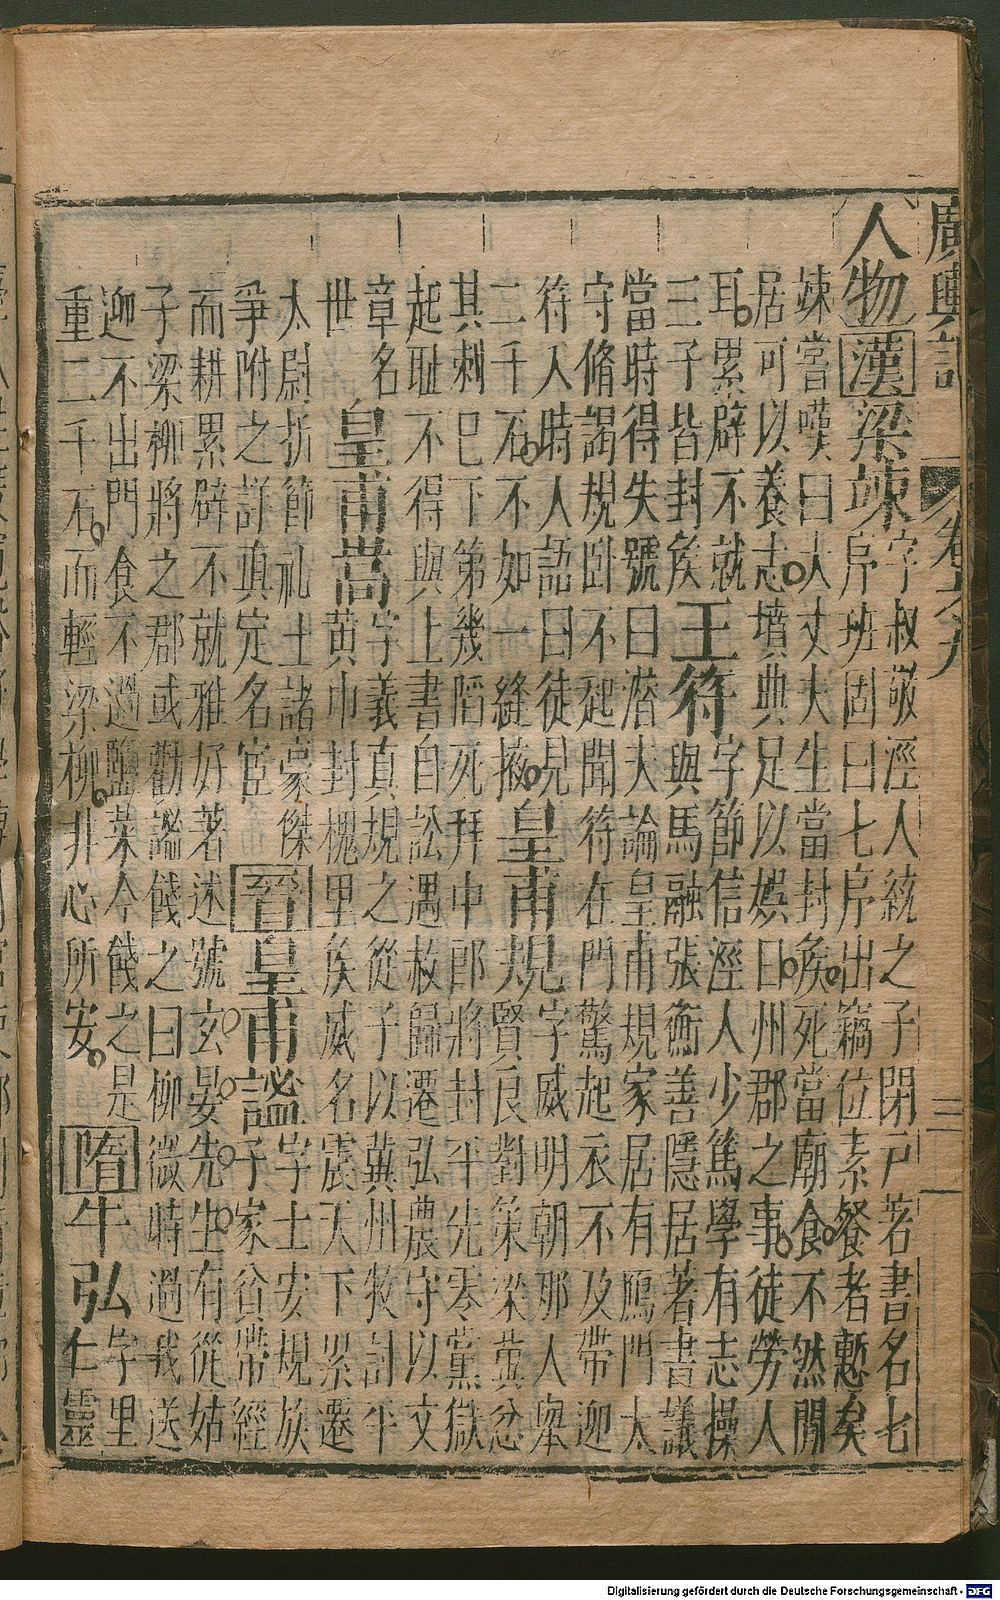 廣輿記 卷之九 三
人物 漢 梁竦 字叔敬涇人統之子閉戸著書名七
序班固曰七序出竊位素餐者慙矣
竦嘗嘆曰大丈夫生當封侯死當廟食不然閒
居可以養志墳典足以娛日州郡之事徒勞人
耳累辟不就
三子皆封侯
王符 字節信涇人少篤學有志操
與馬融張衡善隱居著書議
當時得失號曰潛夫論皇甫規家居有鴈門太
守脩謁規卧不起聞符在門驚起衣不及帶迎
符入時人語曰徒見
二千石不如一縫掖
皇甫規 字威明朝那人舉
賢良對策梁冀忿
其刺巳下第幾陷死拜中郎將封平先寒黨獄
起耻不得與上書自訟遇赦歸遷弘農守以文
章名
世
皇甫嵩 字義真規之從子以冀州牧討平
黄巾封槐里侯威名震天下累遷
太尉折節礼士諸豪傑
爭附之詳眞定名宦
晉 皇甫謐 字士安規族
子家貧帶經
而耕累辟不就雅好著述號玄晏先生有從姑
子梁柳將之郡或勸謐餞之曰柳微時過我送
迎不出門食不過鹽菜今餞之是
重二千石而輕梁柳非心所安
隋 牛弘 字里
仁靈
Digitalisierung gefördert durch die Deutsche Forschungsgemeinschaft - DFG